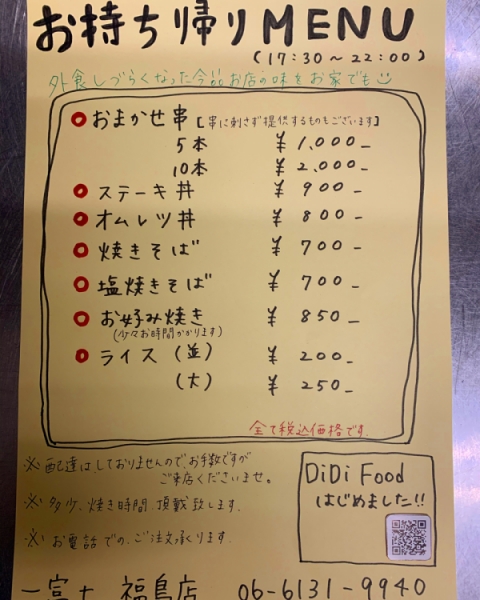 お持ち帰りMENU
(17:30~22:00)
外食しづらくなった今!! お店の味をお家でも
おまかせ串 [串に刺さず提供するものもございます]
5本 ¥1,000-
10本 ¥2,000-
ステーキ丼 ¥900-
オムレツ丼 ¥800-
焼きそば ¥700-
塩焼きそば ¥700-
お好み焼き ¥850-
(少々お時間かかります)
ライス (並) ¥200-
(大) ¥250-
全て税込価格です。
※配達はしておりませんので、お手数ですが
ご来店くださいませ。
※多少、焼き時間、頂戴致します。
※お電話でのご注文承ります。
DiDi Food
はじめました!!
一富士 福島店 06-6131-9940